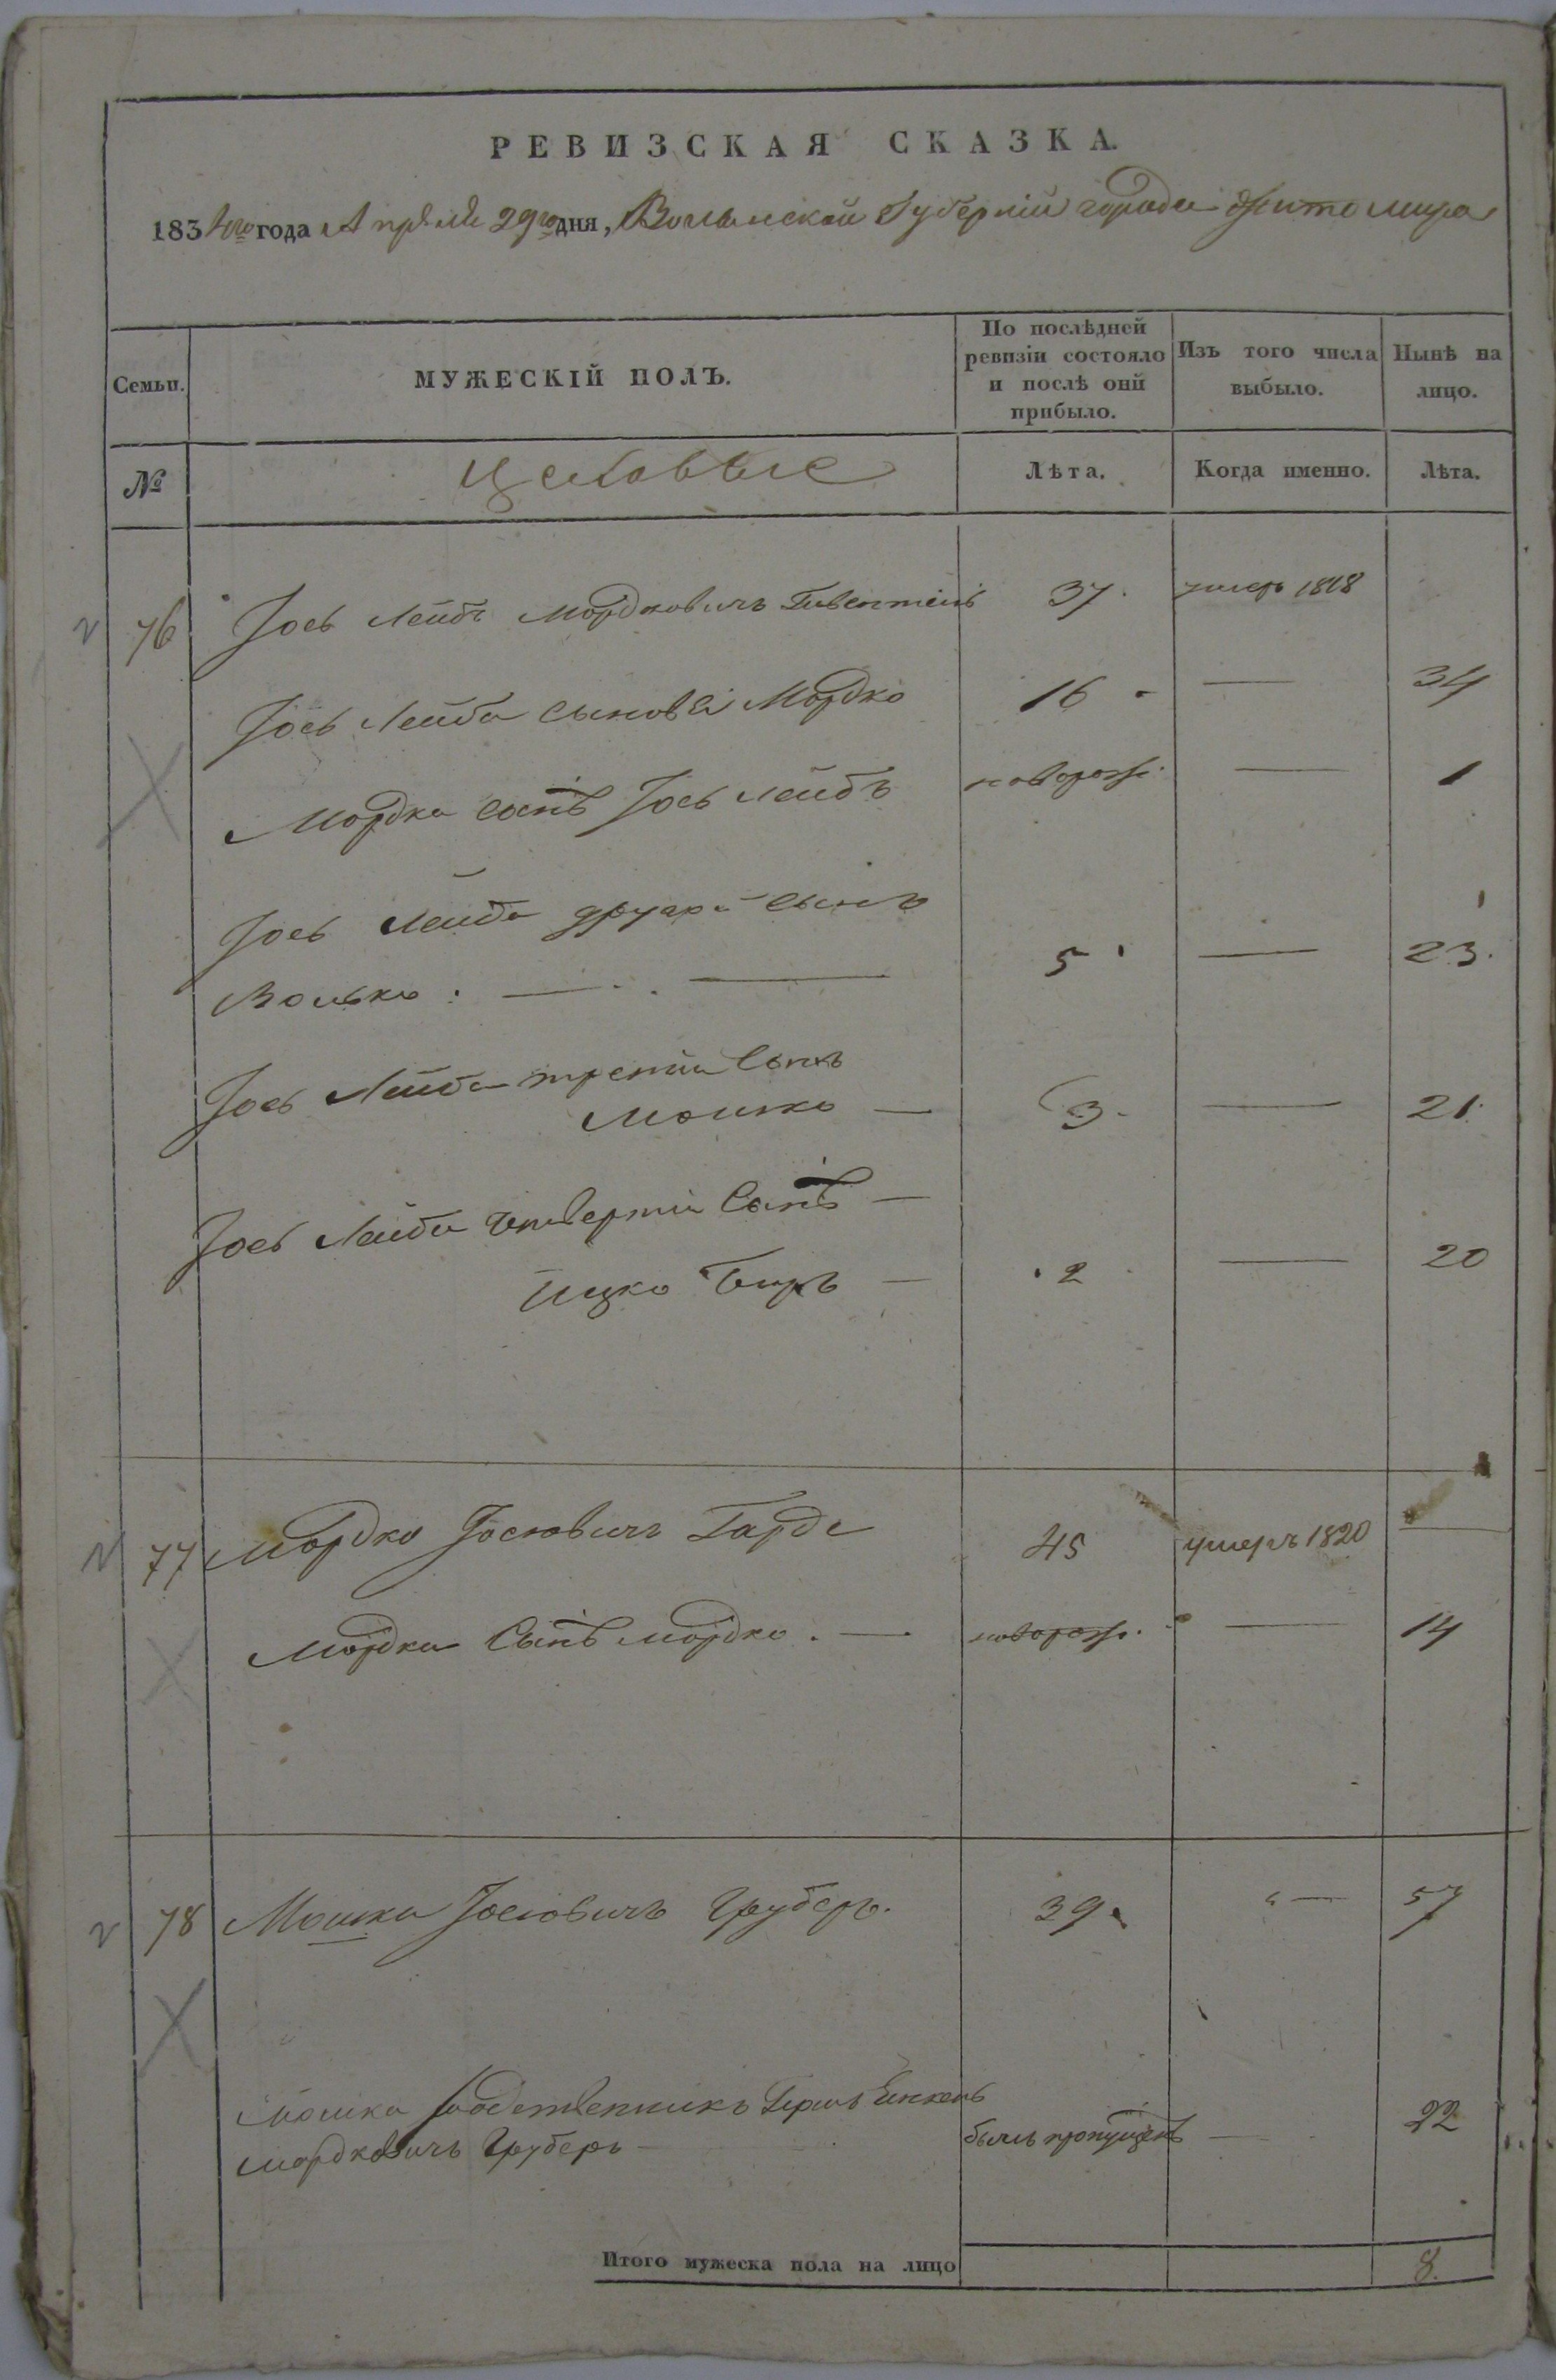 РЕВИЗСКАЯ СКАЗКА.
1834го года Апреля 29го дня, Волынской Губерніи города Житомира
Семьи.
МУЖЕСКІЙ ПОЛЪ.
По послѣдней ревизіи состояло и послѣ оній прибыло.
Изъ того числа выбыло.
Нынѣ на лицо.
№
Цеховые
Лѣта.
Когда именно.
Лѣта.
76 Іось Лейбъ Мордковичъ 37. умеръ 1818
Іось Лейба сыновья Мордко 16 — 34
Мордка сынъ Іось Лейбъ поворожд. — 1
Іось Лейба другой сынъ
Волько. — 5 — 23.
Іось Лейба третій Сынъ
Мошко — 3. — 21.
Іось Лейба четвертій Сынъ —
Ицко Беръ — 2 — 20
77 Мордко Іосювичъ Гарбе 45 умеръ 1820 —
Мордка Сынъ Мордко. — новорожд. — 14
78 Мошка Іосювичъ Груберъ. 39. — 57
Мошка родственникъ Гершъ
Мордковичъ Груберъ — былъ пропущенъ — 22
Итого мужеска пола на лицо 8.